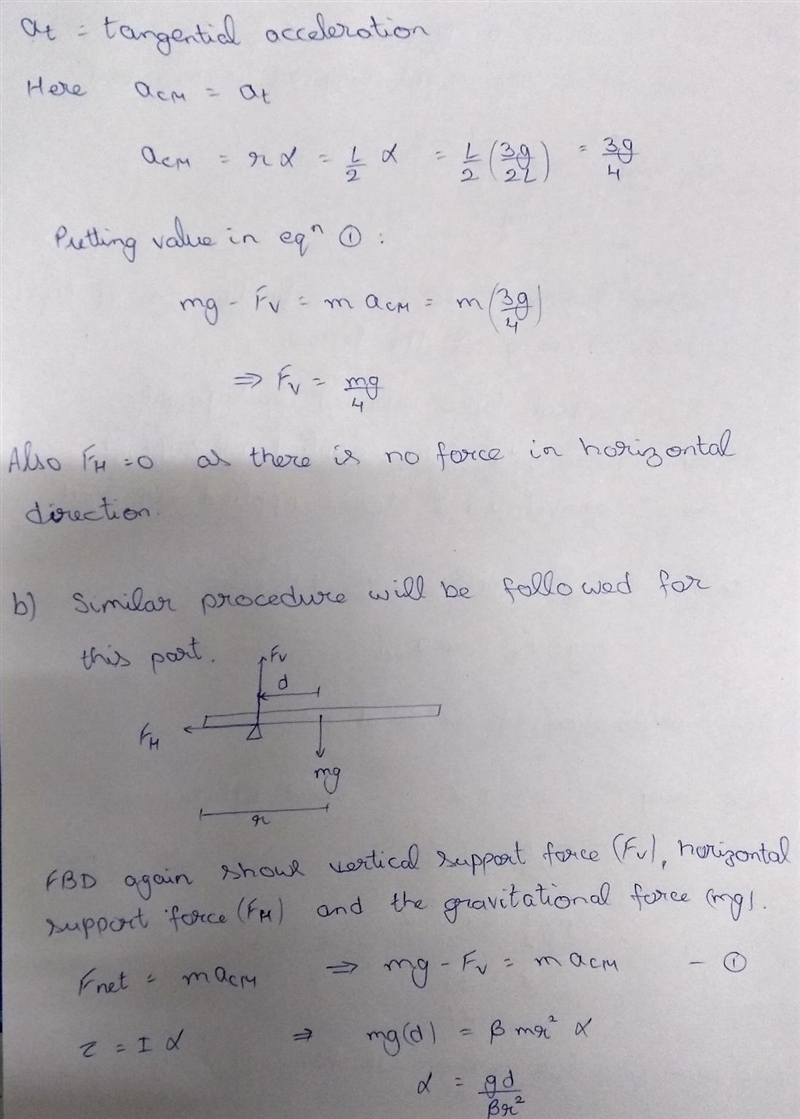 at = tangential acceleration
Here aCM = at
aCM = r α = L/2 α = L/2 (3g/2L) = 3g/4
Putting value in eqⁿ ①:
mg - FV = m aCM = m(3g/4)
⇒ FV = mg/4
Also FH = 0 as there is no force in horizontal
direction.
b) Similar procedure will be followed for
this part.
FV
d
FH
mg
r
FBD again show vertical support force (FV), horizontal
support force (FH) and the gravitational force (mg).
Fnet = maCM ⇒ mg - FV = m aCM - ①
τ = I α ⇒ mg(d) = β mr² α
α = gd/βr²